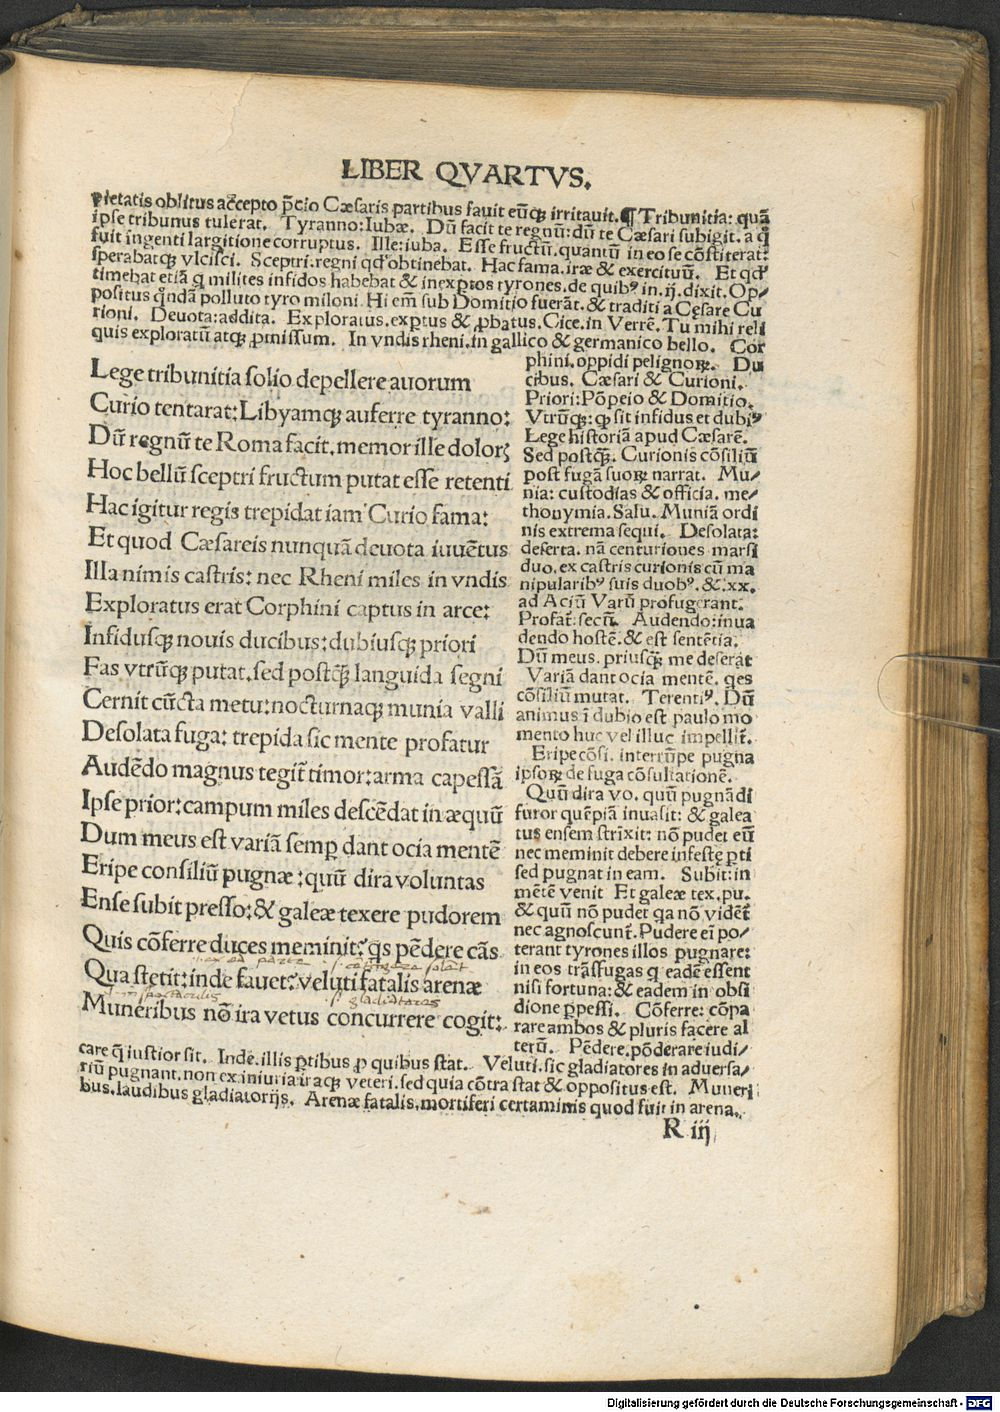 LIBER QVARTVS.
pietatis oblitus accepto p̄cio Cæsaris partibus fauit eūqꝫ irritauit. ¶ Tribunitia: quā
ipse tribunus tulerat. Tyranno: Iubæ. Dū facit te regnū: dū te Cæsari subigit. a q̊
fuit ingenti largitione corruptus. Ille: iuba. Esse fructū. quantū in eo se cōstiterat:
sperabatqꝫ vlcisci. Sceptri: regni qđ obtinebat. Hac fama. iræ & exercituū. Et qđ
timebat etiā q̊ milites infidos habebat & inexptos tyrones. de quibꝰ in .ij. dixit. Op/
positus q̄ndā polluto tyro miloni. Hi em̄ sub Domitio fuerāt. & traditi a Cesare Cu
rioni. Deuota: addita. Exploratus. exptus & ꝓbatus. Cice. in Verrē. Tu mihi reli
quis exploratū atqꝫ ꝓmissum. In vndis rheni. in gallico & germanico bello. Cor
Lege tribunitia solio depellere auorum
Curio tentarat: Libyamqꝫ auferre tyranno:
Dū regnū te Roma facit. memor ille dolorꝭ
Hoc bellū sceptri fructum putat esse retenti
Hac igitur regis trepidat iam Curio fama:
Et quod Cæsareis nunquā deuota iuuētus
Illa nimis castris: nec Rheni miles in vndis
Exploratus erat Corphini captus in arce:
Infidusqꝫ nouis ducibus: dubiusqꝫ priori
Fas vtrūqꝫ putat. sed postqꝫ̄ languida segni
Cernit cūcta metu: nocturnaqꝫ munia valli
Desolata fuga: trepida sic mente profatur
Audēdo magnus tegit̄ timor: arma capessā
Ipse prior: campum miles descēdat in æquū
Dum meus est variā semꝑ dant ocia mentē
Eripe consiliū pugnæ: quū dira voluntas
Ense subit presso: & galeæ texere pudorem
Quis cōferre duces meminit? q̊s pēdere cās
.i. ex ea parte .s. concurrere solent
Qua stetit: inde fauet: veluti fatalis arenæ
.i. in spectaculis .s. gladiatores
Muneribus nō ira vetus concurrere cogit:
phini. oppidi pelignoꝝ. Du
cibus. Cæsari & Curioni.
Priori: Pōpeio & Domitio.
Vtrūqꝫ: ꝙ sit infidus et dubiꝰ
Lege historiā apud Cæsarē.
Sed postqꝫ̄. Curionis cōsiliū
post fugā suoꝝ narrat. Mu/
nia: custodias & officia. me/
thonymia. Salu. Muniā ordi
nis extrema sequi. Desolata:
deserta. nā centuriones marsi
duo. ex castris curionis cū ma
nipularibꝰ suis duobꝰ. &.xx.
ad Aciū Varū profugerant.
Profat̄: secū. Audendo: inua
dendo hostē. & est sentētia.
Dū meus. priusqꝫ̄ me deserāt
Variā dant ocia mentē. qes
cōsiliū mutat. Terentiꝰ. Dū
animus ī dubio est paulo mo
mento huc vel illuc impellit̄.
Eripe cōsi. interrūpe pugna
ipsoꝝ de fuga cōsultationē.
Quū dira vo. quū pugnādi
furor quēpiā inuasit: & galea
tus ensem strixit: nō pudet eū
nec meminit debere infestę ꝑti
sed pugnat in eam. Subit: in
mētē venit Et galeæ tex. pu.
& quū nō pudet qa nō vidēt̄
nec agnoscunt̄. Pudere eī po/
terant tyrones illos pugnare:
in eos trāsfugas q̊ eadē essent
nisi fortuna: & eadem in obsi
dione ꝑpessi. Cōferre: cōpa
rare ambos & pluris facere al
terū. Pēdere. pōderare iudi/
care q̄ iustior sit. Inde. illis ꝑtibus ꝓ quibus stat. Veluti. sic gladiatores in aduersa/
riū pugnant. non ex iniuria iraqꝫ veteri. sed quia cōtra stat & oppositus est. Muneri
bus. laudibus gladiatorijs. Arenæ fatalis. mortiferi certaminis quod fuit in arena.
R iij
Digitalisierung gefördert durch die Deutsche Forschungsgemeinschaft - DFG